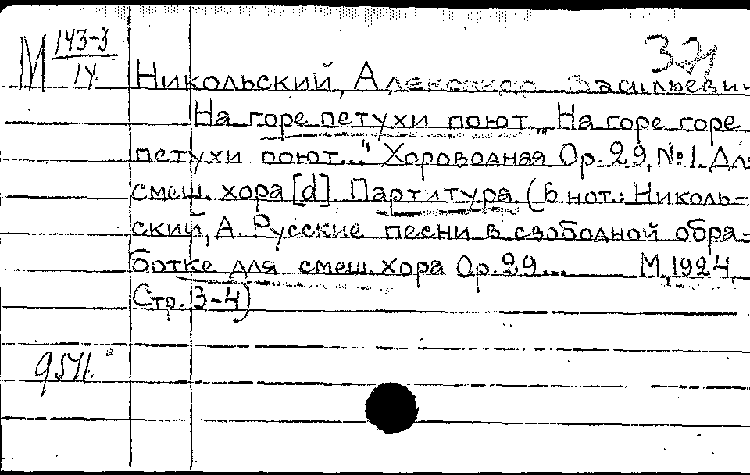 М 143-3/IX 3-й
Никольский, Александр Васильевич
На горе петухи поют „На горе горе
петухи поют..." Хороводная Ор. 29, №1. Для
смеш. хора [d]. Партитура (В нот.: Николь-
ский, А. Русские песни в свободной обра-
ботке для смеш. хора Ор. 29... М, 1924,
Стр. 3-4)